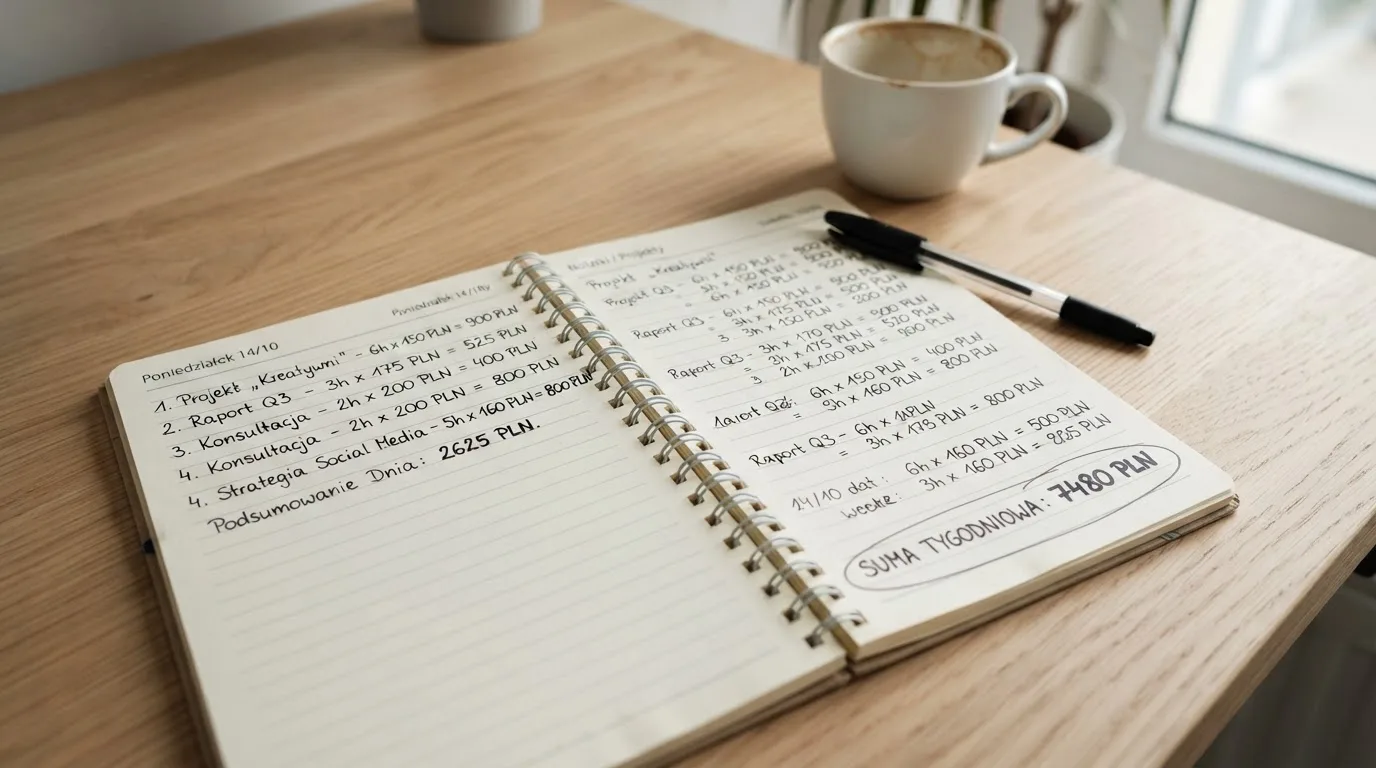 Poniedziałek 14/10
1. Projekt „Kreatywmi" - 6h x 150 PLN = 900 PLN
2. Raport Q3 - 3h x 175 PLN = 525 PLN
3. Konsultacja - 2h x 200 PLN = 400 PLN
4. Konsultacja - 2h x 200 PLN = 800 PLN
4. Strategia Social Media - 5h x 160 PLN = 800 PLN
Podsumowanie Dnia: 2625 PLN.
/ Projekty
Projekt „Kreatywmi" - 6h x 150 PLN =
Projekt Q3 - 3h x 150 PLN =
= 6h x 150 PLN =
Raport Q3 - 6h x 150 PLN = 500 PLN
= 3h x 175 PLN = 500 PLN
3 3h x 150 PLN = 300 PLN
Raport Q3 - 3h x 170 PLN = 900 PLN
= 3h x 175 PLN = 520 PLN
3 2h x 100 PLN = 900 PLN
6h x 150 PLN = 400 PLN
= 3h x 160 PLN = 800 PLN
Raport Q3 - 6h x PLN
= 3h x 175 PLN = 800 PLN
14/10 dat: 6h x 160 PLN = 500 PLN
3h x 160 PLN = PLN
SUMA TYGODNIOWA: 7480 PLN